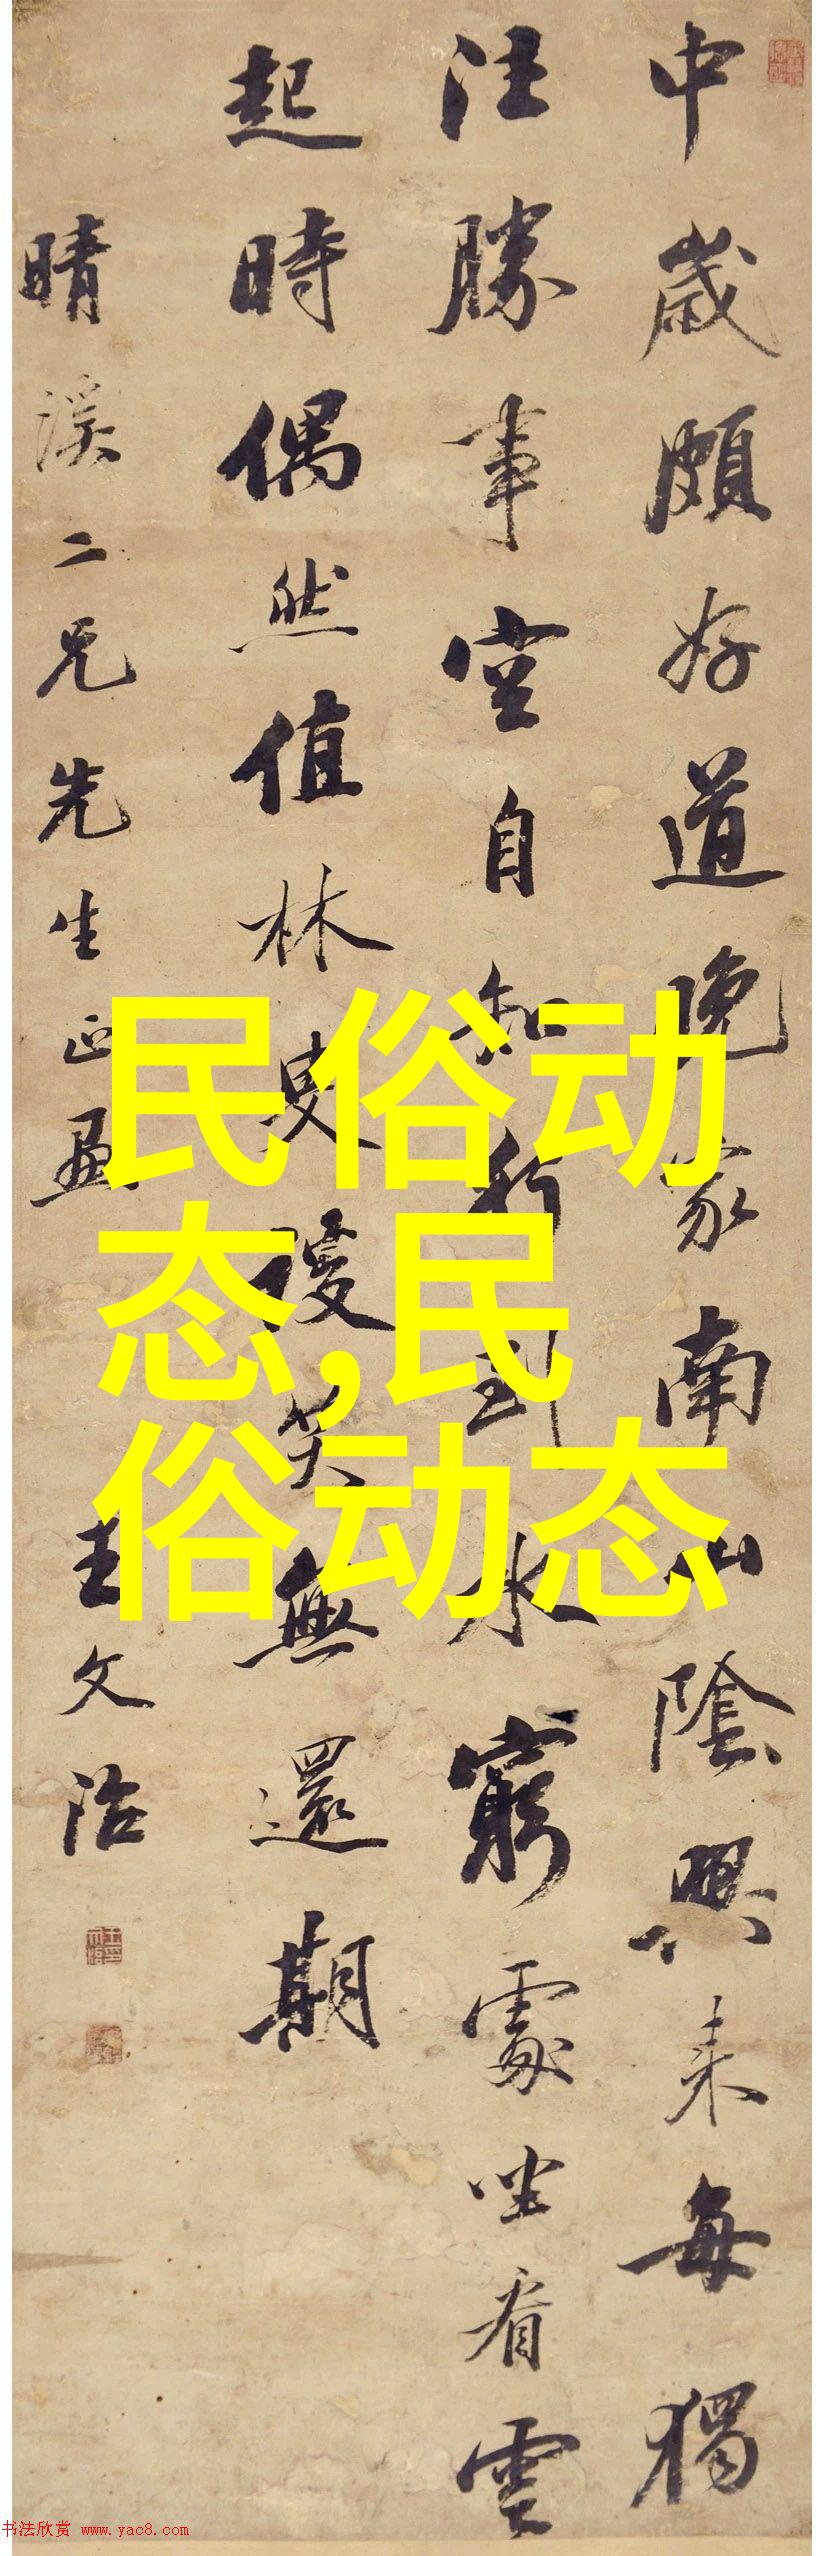 中歲頗好道晚家南山陰興來每獨
往勝事空自知行到水窮處坐看雲
起時偶然值林叟笑無還期
晴溪二兄先生正畫
王文治
民俗动
态,民
俗动态
书法欣赏 www.yac8.com